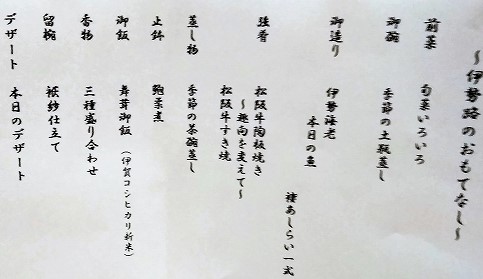 ～伊勢路のおもてなし～
前菜 旬菜いろいろ
御椀 季節の土瓶蒸し
御造り 伊勢海老
本日の魚
褄あしらい一式
強肴 松阪牛陶板焼き
～趣向を変えて～
松阪牛すき焼
蒸し物 季節の茶碗蒸し
止鉢 鮑柔煮
御飯 舞茸御飯（伊賀コシヒカリ新米）
香物 三種盛り合わせ
留椀 袱紗仕立て
デザート 本日のデザート